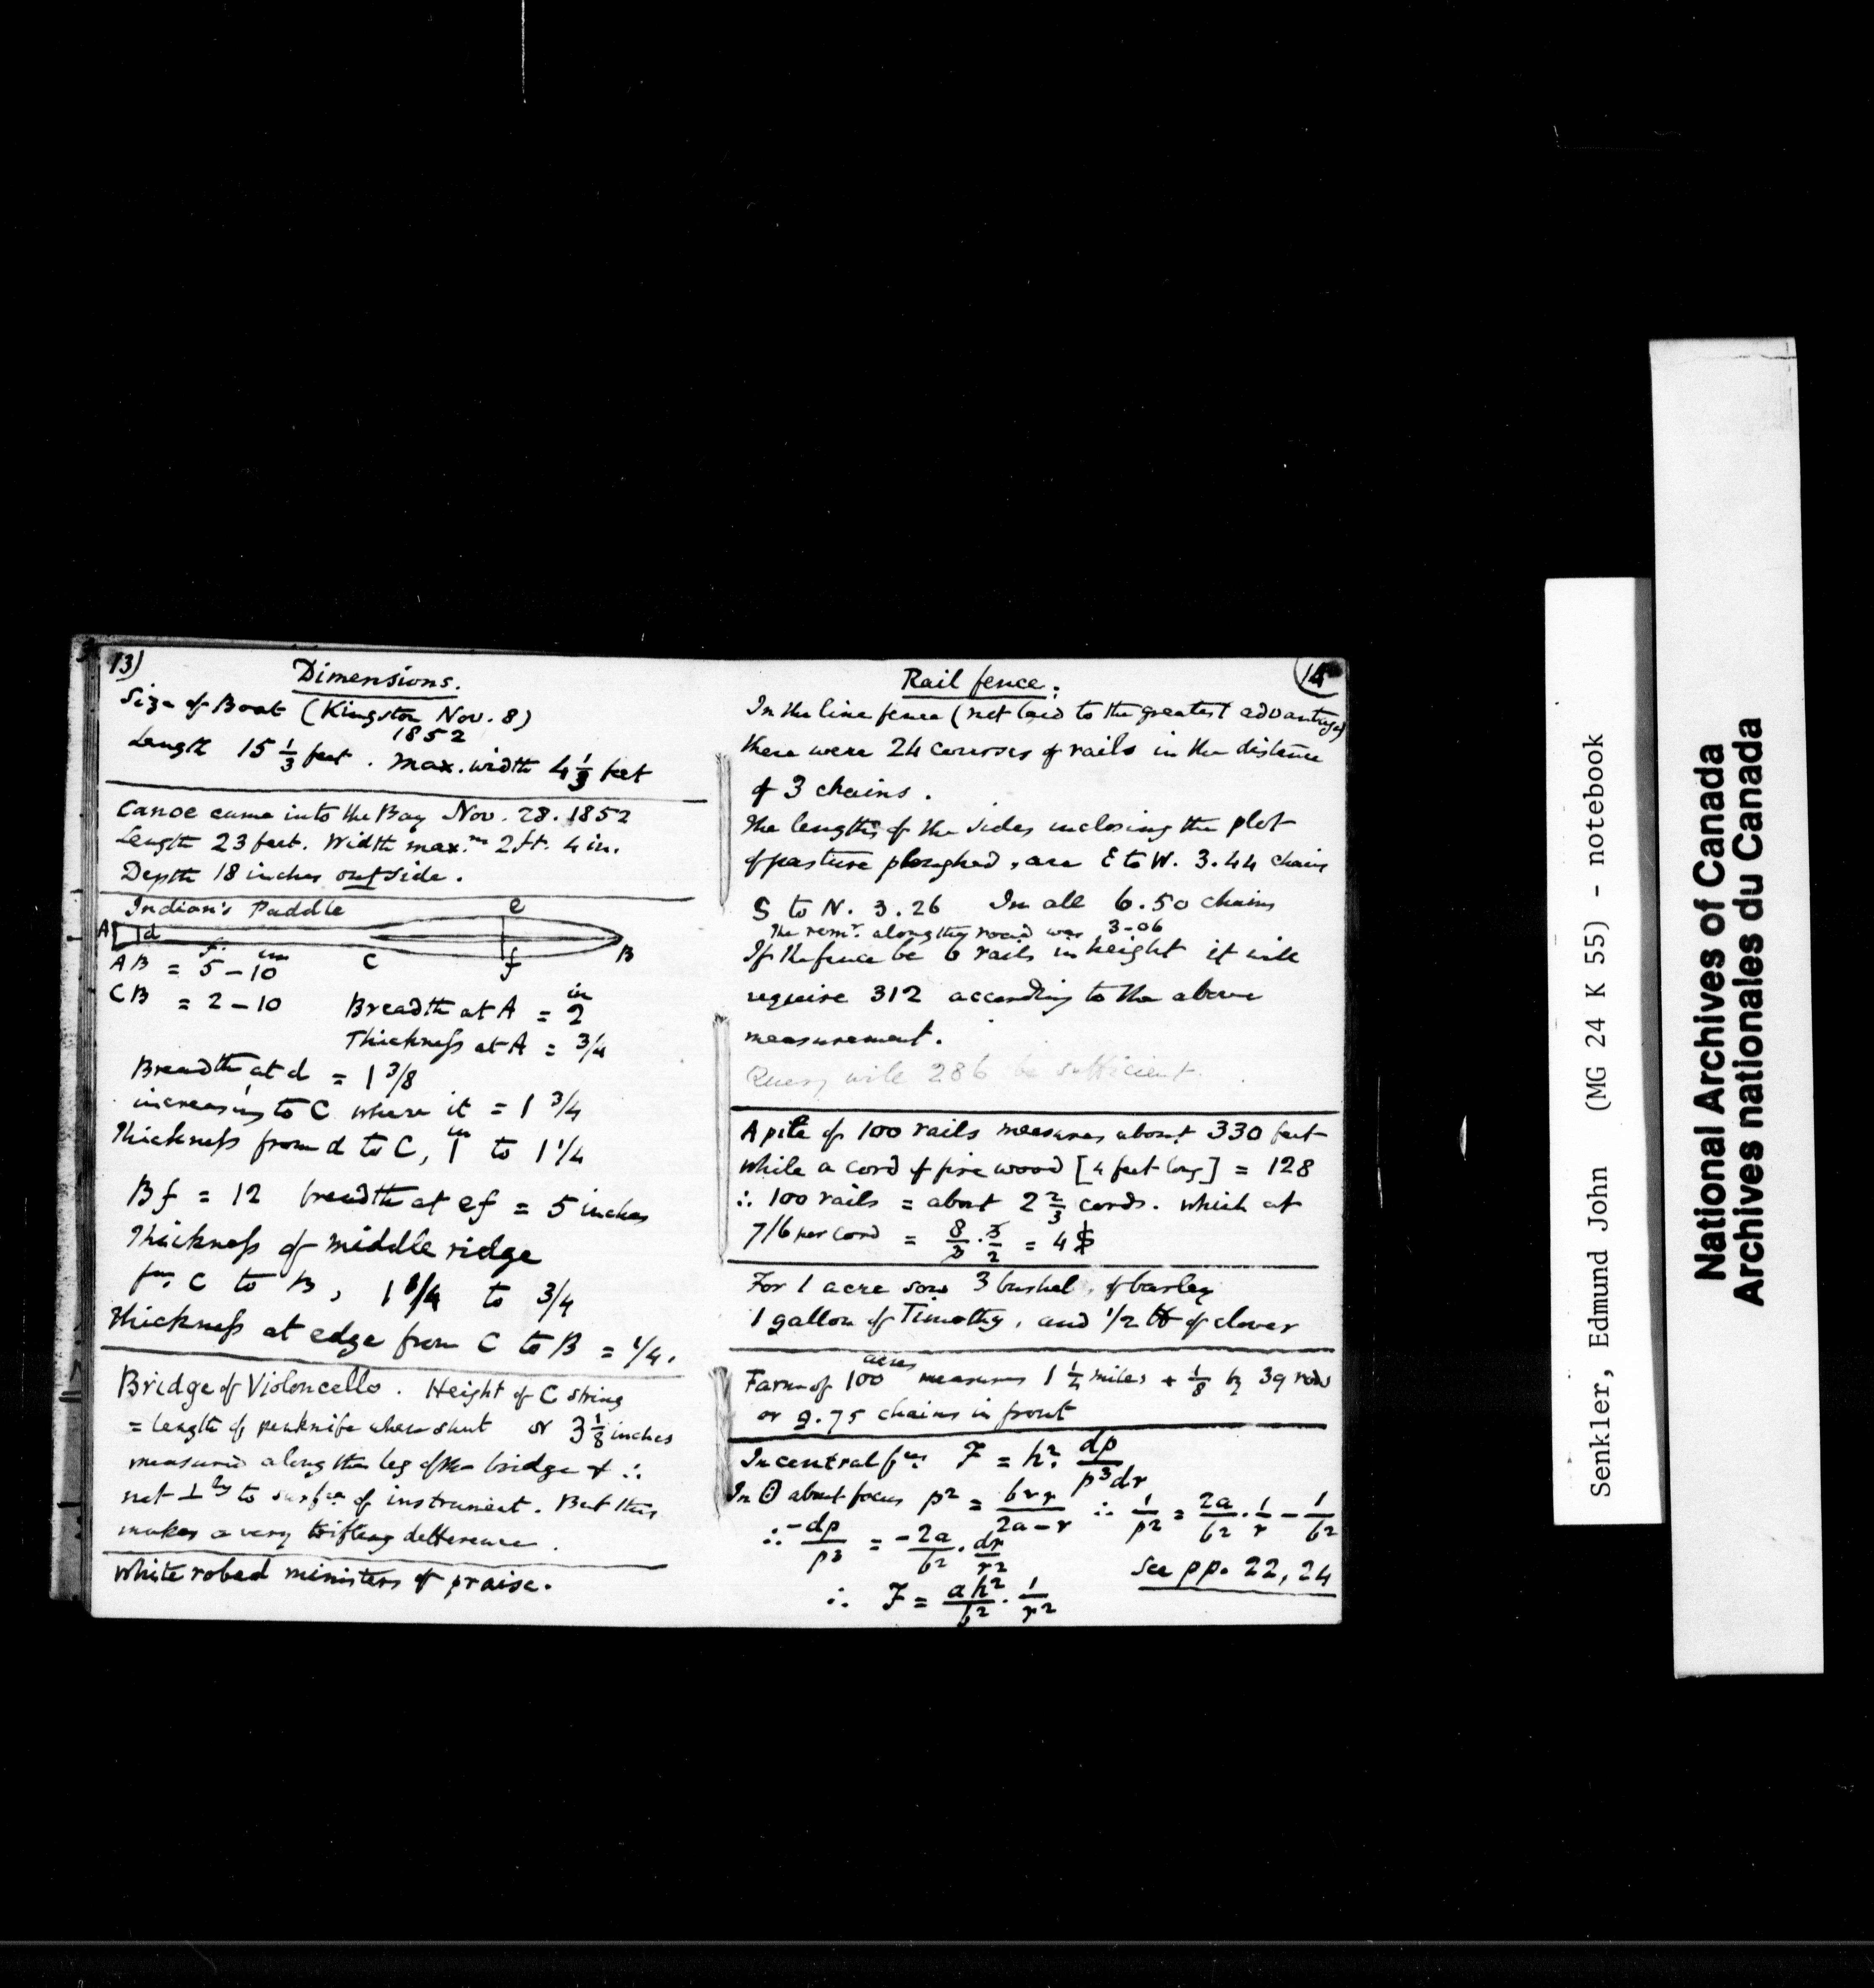 13)
Dimensions.
Size of Boat (Kingston Nov. 8)
1852
Length 15 1/3 feet. max. width 4 1/3 feet
Canoe came into the Bay Nov. 28. 1852
Length 23 feet. Width max.m 2 ft. 4 in.
Depth 18 inches outside.
Indian's Paddle
e
A d
C f B
f. in
AB = 5 - 10
CB = 2 - 10
in
Breadth at A = 2
Thickness at A = 3/4
Breadth at d = 1 3/8
increasing to C where it = 1 3/4
in
Thickness from d to C, 1 to 1 1/4
Bf = 12 breadth at ef = 5 inches
Thickness of middle ridge
fm. C to B, 1 1/4 to 3/4
Thickness at edge from C to B = 1/4.
Bridge of Violoncello. Height of C string
= length of penknife when shut or 3 1/8 inches
measured along the leg of the bridge & ∴
not ⊥ly to surface of instrument. But this
makes a very trifling difference.
White robed ministers of praise.
14
Rail fence.
In the line fence (not laid to the greatest advantage)
there were 24 courses of rails in the distance
of 3 chains.
The lengths of the sides inclosing the plot
of pasture ploughed, are E to W. 3.44 chains
S to N. 3.26 In all 6.50 chains
The remr. along the road was 3-06
If the fence be 6 rails in height it will
require 312 according to the above
measurement.
Query will 286 be sufficient.
A pile of 100 rails measures about 330 feet
while a cord of fire wood [4 feet long] = 128
∴ 100 rails = about 2 2/3 cords. which at
7/6 per cord = 8/3 . 3/2 = 4 $
For 1 acre sow 3 bushels of barley
1 gallon of Timothy, and 1/2 lb of clover
acres
Farm of 100 measures 1 1/4 miles + 1/8 by 39 rods
or 9.75 chains in front
In central fces F = h². dp/p³dr
In ʘ about focus p² = b²r/2a-r ∴ 1/p² = 2a/b² . 1/r - 1/b²
∴ -dp/p³ = -2a/b² . dr/r²
see pp. 22, 24
∴ F = ah²/b² . 1/r²
Senkler, Edmund John (MG 24 K 55) - notebook
National Archives of Canada
Archives nationales du Canada